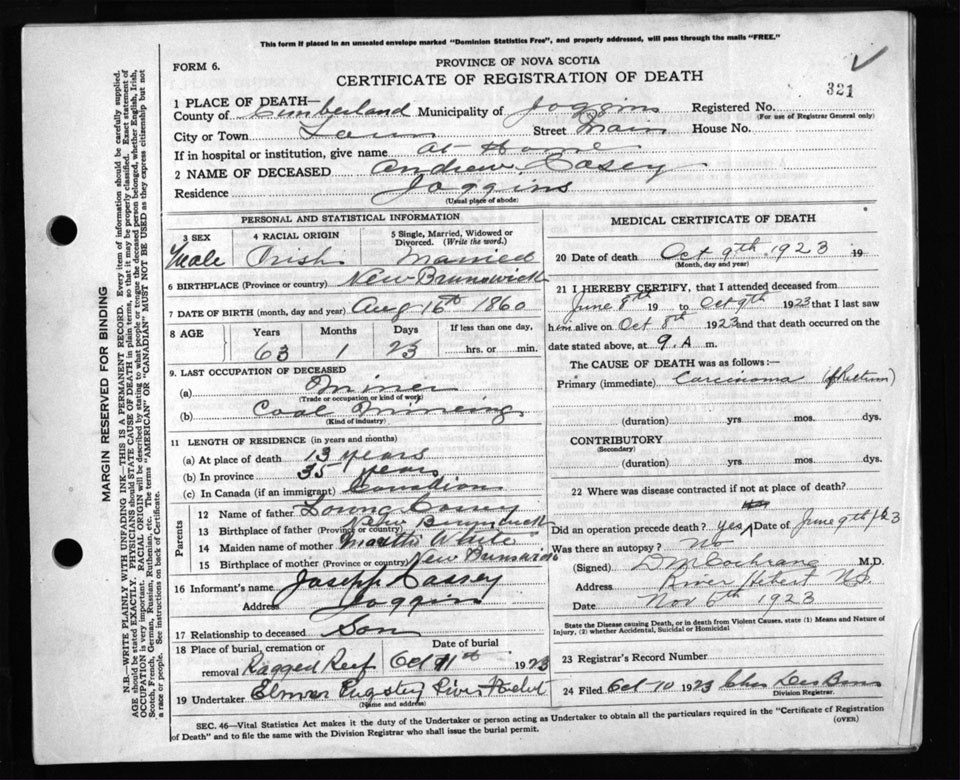 This form if placed in an unsealed envelope marked "Dominion Statistics Free", and properly addressed, will pass through the mails "FREE."
FORM 6.
PROVINCE OF NOVA SCOTIA
CERTIFICATE OF REGISTRATION OF DEATH
321
1 PLACE OF DEATH—
County of Cumberland Municipality of Joggins Registered No.
(For use of Registrar General only)
City or Town Town Street Main House No.
If in hospital or institution, give name at Home
2 NAME OF DECEASED Andrew Casey
Residence Joggins
(Usual place of abode)
PERSONAL AND STATISTICAL INFORMATION
3 SEX
Male
4 RACIAL ORIGIN
Irish
5 Single, Married, Widowed or Divorced. (Write the word.)
Married
6 BIRTHPLACE (Province or country) New Brunswick
7 DATE OF BIRTH (month, day and year) Aug 16th 1860
8 AGE
Years Months Days If less than one day.
63 1 23 hrs. or min.
9. LAST OCCUPATION OF DECEASED
(a) Miner
(Trade or occupation or kind of work)
(b) Coal Mineing
(Kind of industry)
11 LENGTH OF RESIDENCE (in years and months)
(a) At place of death 13 years
(b) In province 35 years
(c) In Canada (if an immigrant) Canadian
Parents
12 Name of father Casey
13 Birthplace of father (Province or country) New Brunswick
14 Maiden name of mother Martha White
15 Birthplace of mother New Brunswick
16 Informant's name Joseph Cassey
Address Joggins
17 Relationship to deceased Son
18 Place of burial, cremation or removal Ragged Reef Date of burial Oct 11th 1923
19 Undertaker River Hebert
(Name and address)
MEDICAL CERTIFICATE OF DEATH
20 Date of death Oct 9th 1923 19
(Month, day and year)
21 I HEREBY CERTIFY, that I attended deceased from
June 8th 19 to Oct 9th 1923 that I last saw
him alive on Oct 8th 1923 and that death occurred on the
date stated above, at 9. A m.
The CAUSE OF DEATH was as follows:—
Primary (immediate) Carcinoma (of Rectum)
(duration) yrs. mos. dys.
CONTRIBUTORY
(Secondary)
(duration) yrs. mos. dys.
22 Where was disease contracted if not at place of death?
Did an operation precede death? yes Date of June 9th
Was there an autopsy? No
(Signed) Cochrane M.D.
Address River Hebert N.S.
Date Nov 6th 1923
State the Disease causing Death, or in death from Violent Causes, state (1) Means and Nature of
Injury, (2) whether Accidental, Suicidal or Homicidal
23 Registrar's Record Number
24 Filed Oct 10 1923 Chas
Division Registrar.
SEC. 46—Vital Statistics Act makes it the duty of the Undertaker or person acting as Undertaker to obtain all the particulars required in the "Certificate of Registration
of Death" and to file the same with the Division Registrar who shall issue the burial permit.
(OVER)
MARGIN RESERVED FOR BINDING
N.B.—WRITE PLAINLY WITH UNFADING INK—THIS IS A PERMANENT RECORD. Every item of information should be carefully supplied.
AGE should be stated EXACTLY. PHYSICIANS should STATE CAUSE OF DEATH in plain terms, so that it may be properly classified. Exact statement of
OCCUPATION is very important. RACIAL ORIGIN will be described by stating to what people or tongue the deceased person belonged, whether English, Irish,
Scotch, French, German, Russian, Ruthenian, etc. The terms "AMERICAN" OR "CANADIAN" MUST NOT BE USED as they express citizenship but not
a race or people. See instructions on back of Certificate.